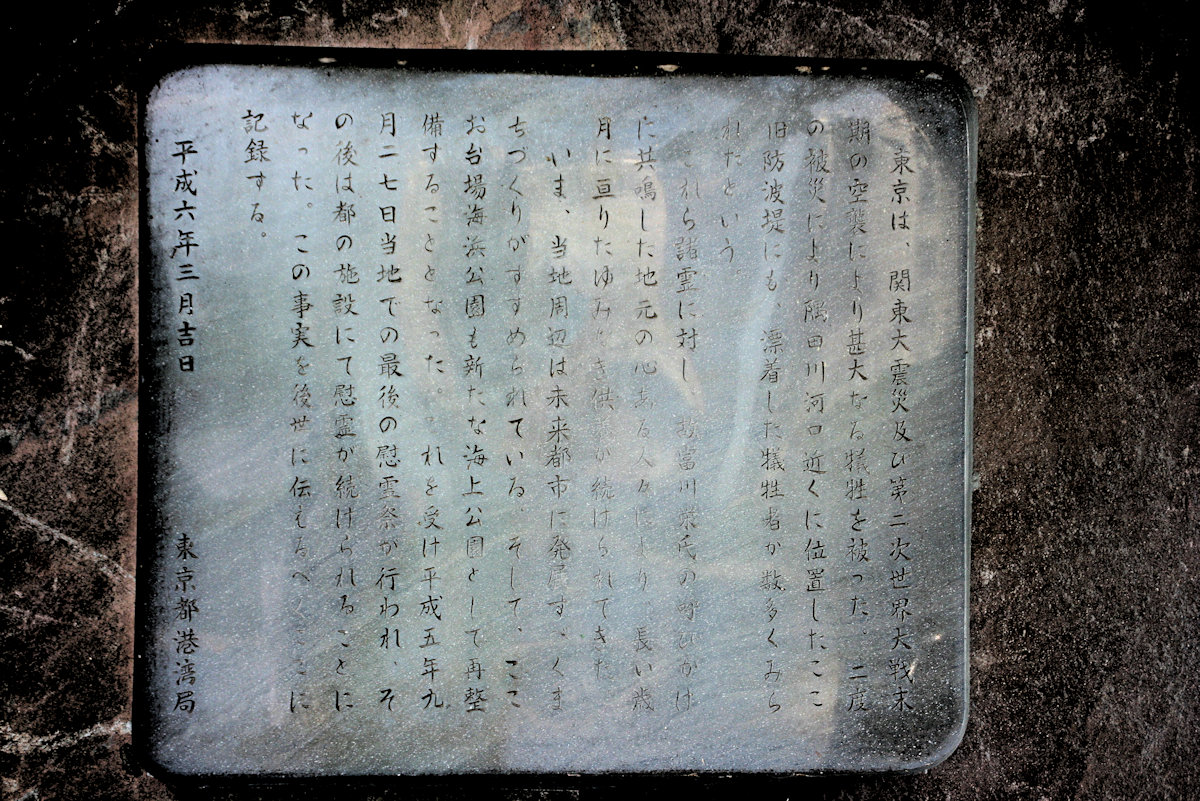 東京は、関東大震災及び第二次世界大戦末
期の空襲により甚大なる犠牲を被った。二度
の被災により隅田川河口近くに位置したここ
旧防波堤にも、漂着した犠牲者が数多くみら
れたという。
これら諸霊に対し、故富川栄氏の呼びかけ
に共鳴した地元の心ある人々により、長い歳
月に亘りたゆみなき供養が続けられてきた。
いま、当地周辺は未来都市に発展すべくま
ちづくりがすすめられている。そして、ここ
お台場海浜公園も新たな海上公園として再整
備することとなった。これを受け平成五年九
月二七日当地での最後の慰霊祭が行われ、そ
の後は都の施設にて慰霊が続けられることに
なった。この事実を後世に伝えるべくここに
記録する。
平成六年三月吉日
東京都港湾局